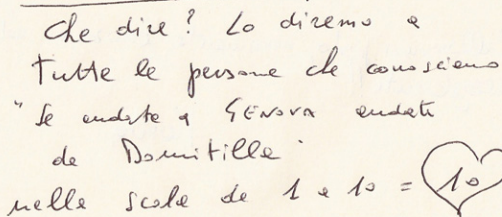 Che dire? Lo diremo a
tutte le persone che conosciamo
"Se andate a GENOVA andate
da Domitilla"
nella scala da 1 a 10 = 10